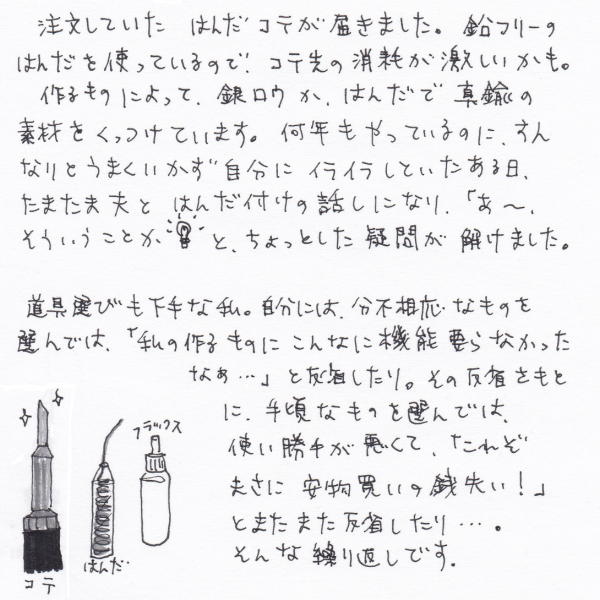 注文していた はんだコテが届きました。鉛フリーの
はんだを使っているので、コテ先の消耗が激しいかも。
作るものによって、銀ロウか、はんだで真鍮の
素材をくっつけています。何年もやっているのに、すん
なりとうまくいかず自分にイライラしていたある日、
たまたま夫と はんだ付けの話しになり、「あ〜、
そういうことか と、ちょっとした疑問が解けました。
道具選びも下手な私。自分には、分不相応なものを
選んでは、「私の作るものにこんなに機能要らなかった
なぁ…」と反省したり。その反省をもと
に、手頃なものを選んでは、
使い勝手が悪くて、「これぞ
まさに 安物買いの銭失い！」
とまたまた反省したり…。
そんな繰り返しです。
フラックス
はんだ
コテ